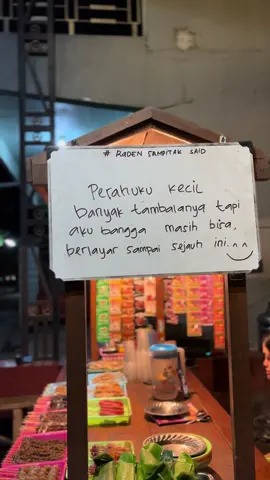 # RADEN SAMBITAK SAID
Perahuku kecil
banyak tambalanya tapi
aku bangga masih bisa,
berlayar sampai sejauh ini.^^